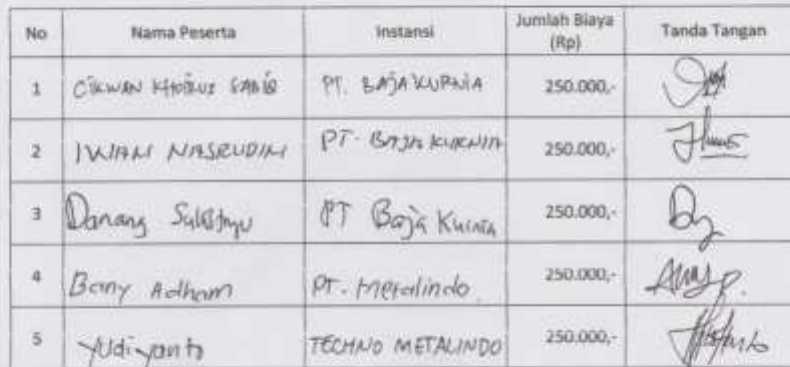 No Nama Peserta Instansi Jumlah Biaya (Rp) Tanda Tangan
1 PT. BAJA KURNIA 250.000,-
2 IWAN NASRUDIN PT. BAJA KURNIA 250.000,-
3 Danang PT Baja Kurnia 250.000,-
4 Bany Adham PT. Metalindo 250.000,-
5 Yudiyanto TECHNO METALINDO 250.000,-